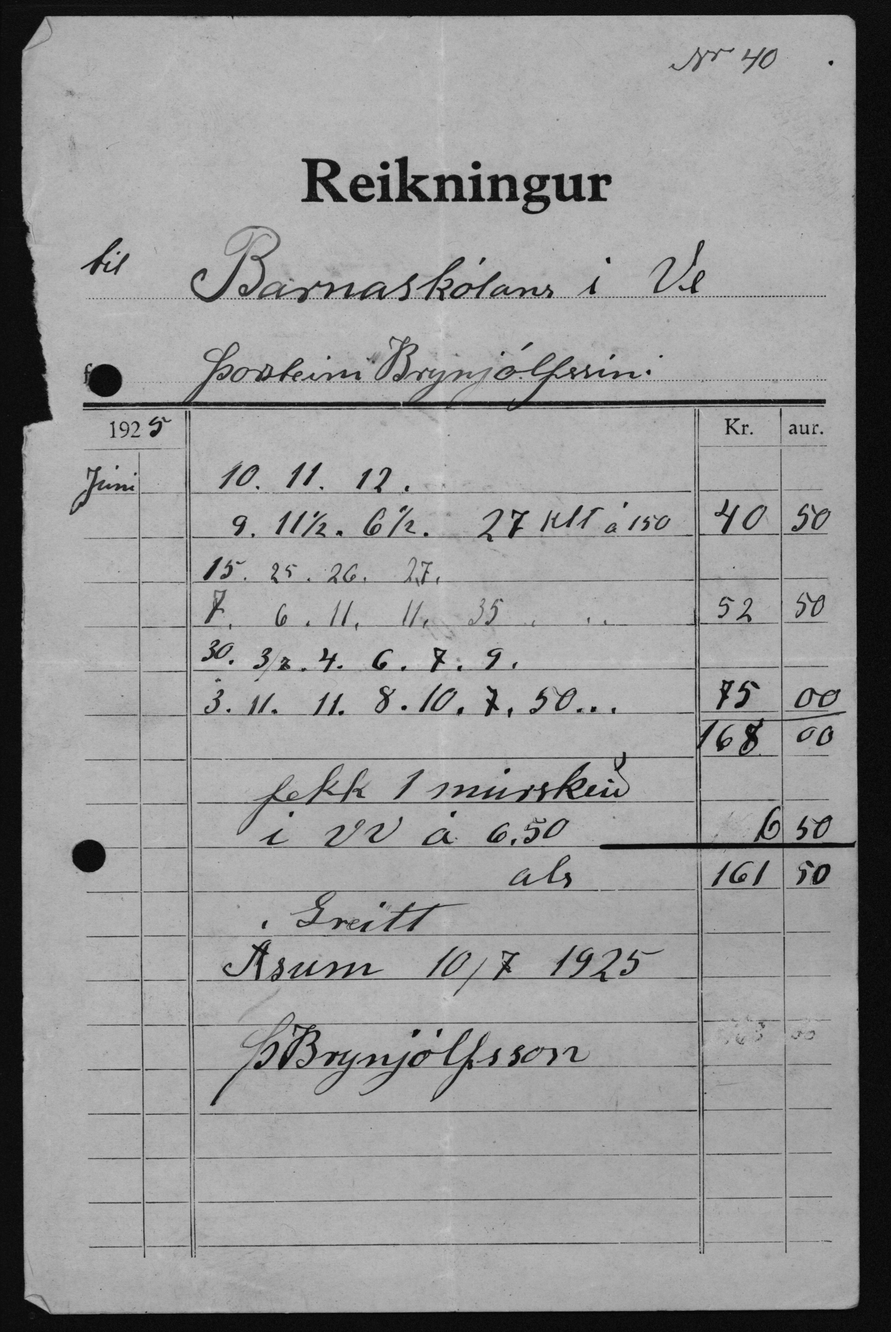 Nr 40
Reikningur
til Barnaskólans í Ve
f Þorsteini Brynjólfssini
1925 Kr. aur.
Júni 10. 11. 12.
9. 11½. 6½. 27 klt á 150 40 50
15. 25. 26. 27.
7. 6. 11. 11. 35 . .. 52 50
30. 3/7. 4. 6. 7. 9.
3. 11. 11. 8. 10. 7. 50... 75 00
168 00
fekk 1 múrskeið
i VV á 6,50 6 50
als 161 50
Greitt
Ásum 10/7 1925
ÞBrynjólfsson